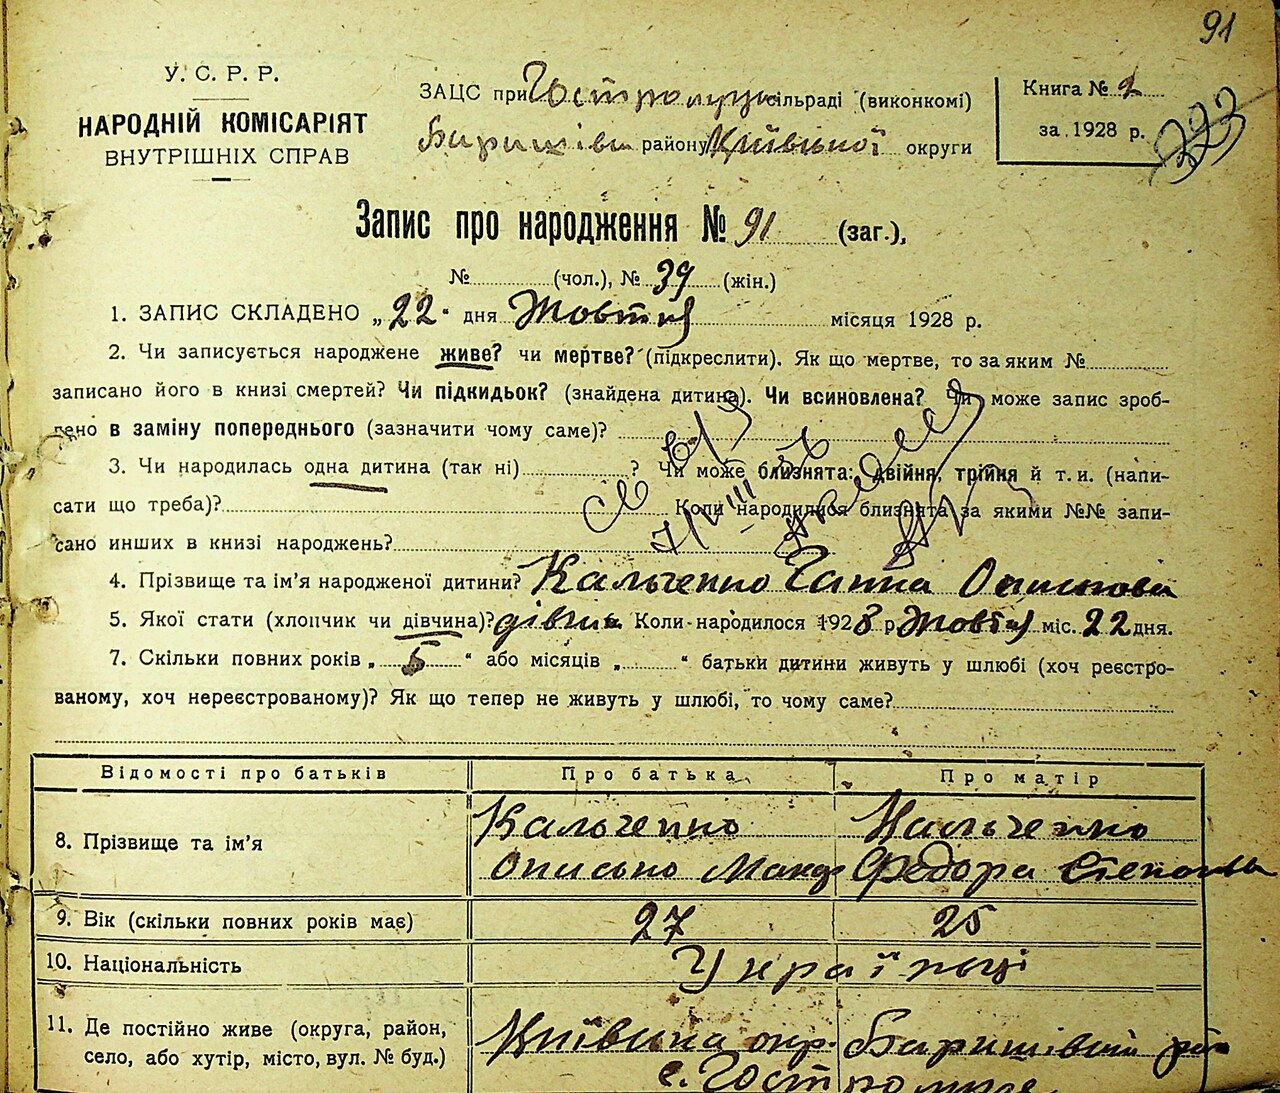 91
У. С. Р. Р.
НАРОДНІЙ КОМІСАРІЯТ
ВНУТРІШНІХ СПРАВ
ЗАЦС при Гостролуцькій сільраді (виконкомі)
Баришівськ району Київської округи
Книга № 2
за 1928 р.
Запис про народження № 91 (заг.),
№ (чол.), № 39 (жін.)
1. ЗАПИС СКЛАДЕНО „22“ дня Жовтня місяця 1928 р.
2. Чи записується народжене живе? чи мертве? (підкреслити). Як що мертве, то за яким №
записано його в книзі смертей? Чи підкидьок? (знайдена дитина). Чи всиновлена? Чи може запис зроб-
лено в заміну попереднього (зазначити чому саме)?
3. Чи народилась одна дитина (так ні) ? Чи може близнята: двійня, трійня й т. и. (напи-
сати що треба)? Коли народилися близнята за якими №№ запи-
сано инших в книзі народжень?
4. Прізвище та ім'я народженої дитини? Кальченко Ганна
5. Якої стати (хлопчик чи дівчина)? дівчина Коли народилося 1928 р. Жовтня міс. 22 дня.
7. Скільки повних років „5“ або місяців „ “ батьки дитини живуть у шлюбі (хоч реєстро-
ваному, хоч нереєстрованому)? Як що тепер не живуть у шлюбі, то чому саме?
Відомості про батьків Про батька Про матір
8. Прізвище та ім'я Кальченко Кальченко
Описько Федора Степанівна
9. Вік (скільки повних років має) 27 25
10. Національність Українці
11. Де постійно живе (округа, район, Київська окр. Баришівський
село, або хутір, місто, вул. № буд.) с. Гостролуччя